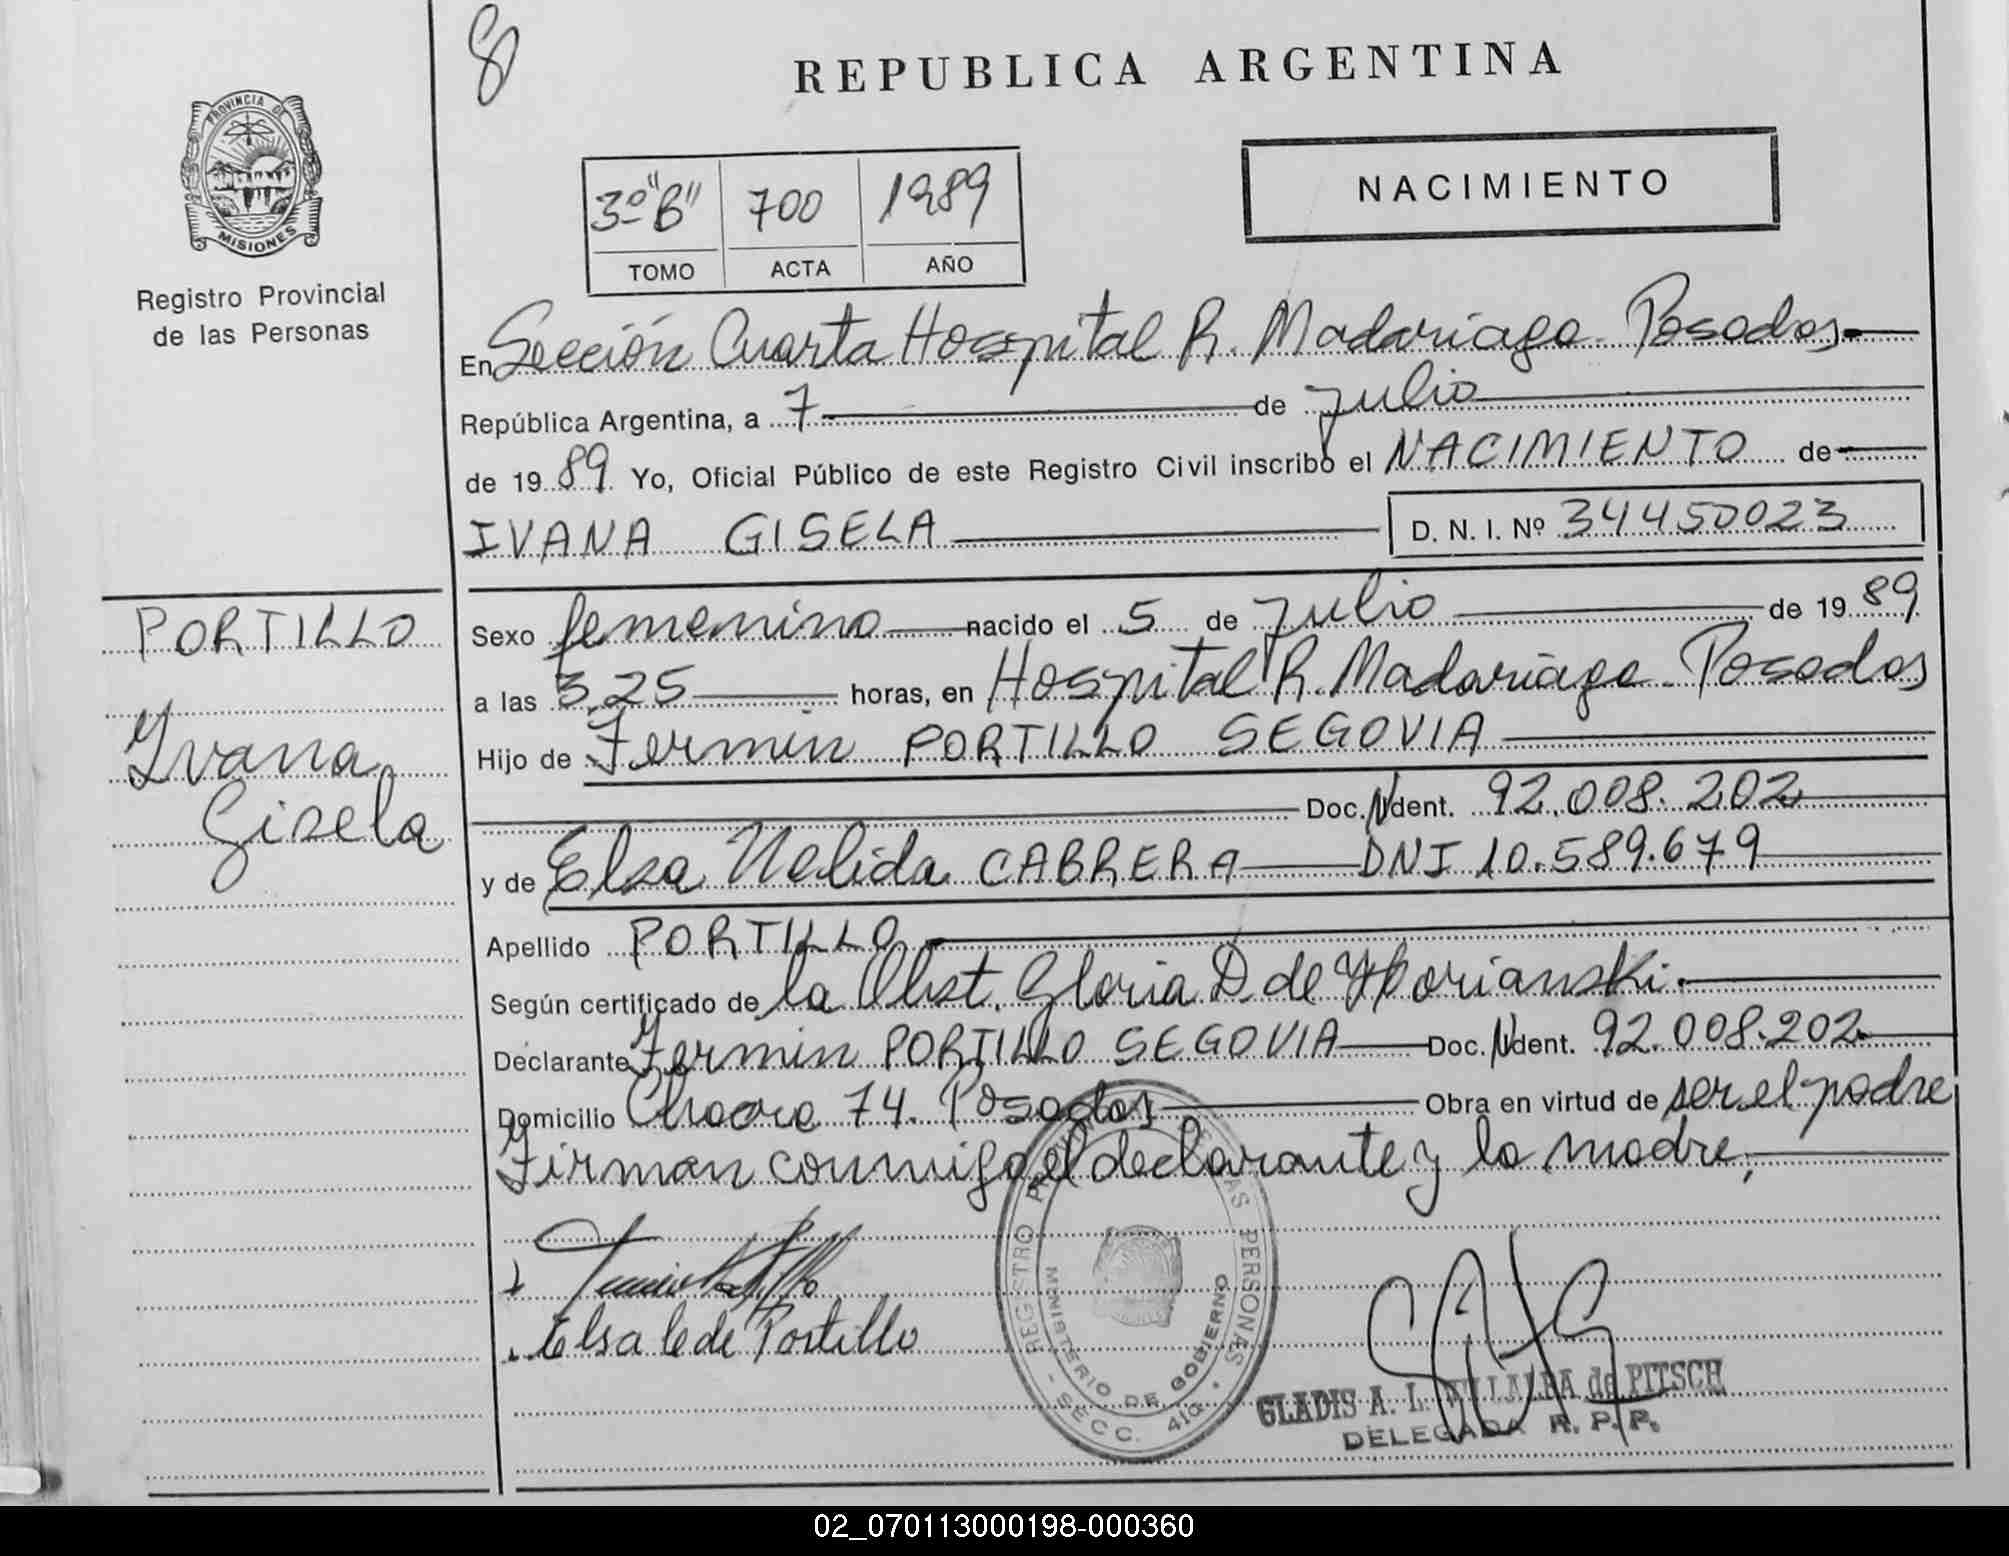 8
REPUBLICA ARGENTINA
PROVINCIA DE
MISIONES
Registro Provincial
de las Personas
3º "B" 700 1989
TOMO ACTA AÑO
NACIMIENTO
En Sección Cuarta Hospital R. Madariaga - Posadas
República Argentina, a 7 de julio
de 1989 Yo, Oficial Público de este Registro Civil inscribo el NACIMIENTO de
IVANA GISELA D. N. I. Nº 34450023
PORTILLO
Ivana
Gisela
Sexo femenino nacido el 5 de julio de 1989
a las 3,25 horas, en Hospital R. Madariaga - Posadas
Hijo de Fermin PORTILLO SEGOVIA
Doc. Ident. 92.008.202
y de Elsa Nelida CABRERA DNI 10.589.679
Apellido PORTILLO
Según certificado de la Obst. Gloria D. de
Declarante Fermin PORTILLO SEGOVIA Doc. Ident. 92.008.202
Domicilio Chacra 74. Posadas Obra en virtud de ser el padre
Firman conmigo el declarante y la madre,
Elsa C de Portillo
REGISTRO PERSONAS
MINISTERIO DE GOBIERNO
- SECC. 4ta -
GLADIS A. L. VILLALBA de PITSCH
DELEGADA R. P. P.
02_070113000198-000360